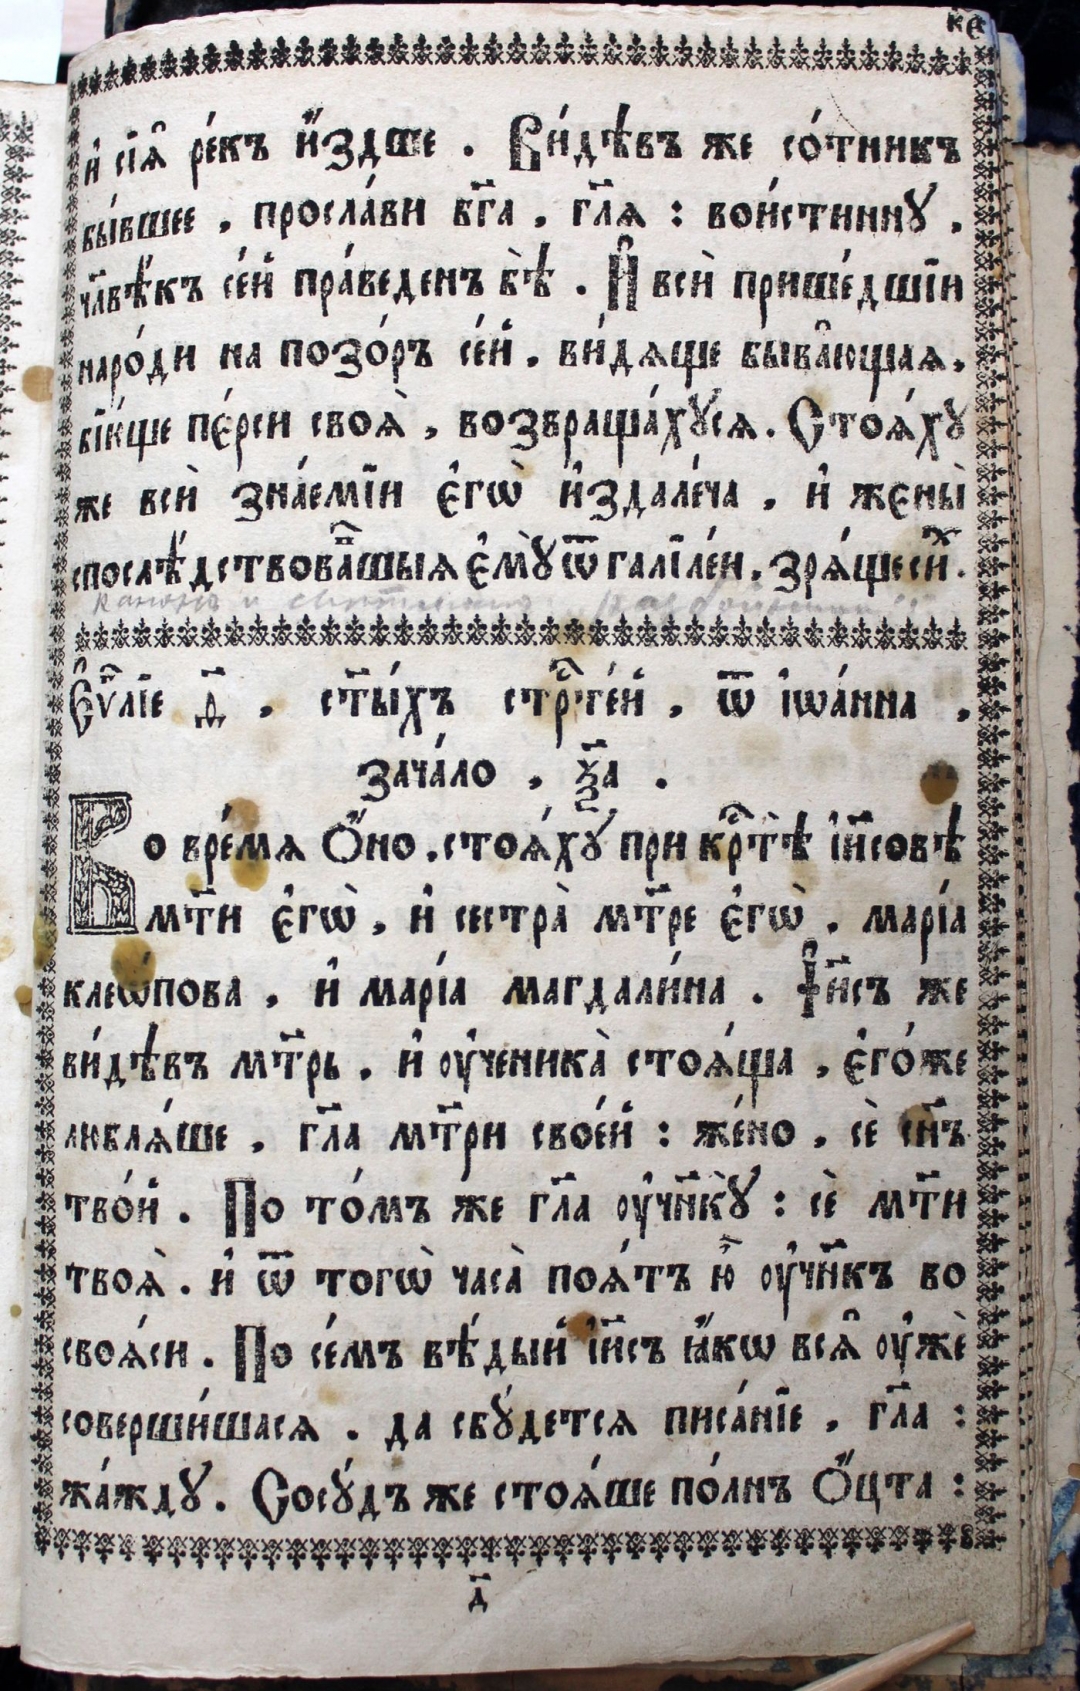 ке
и҆ сїѧ̑ ре́къ и҆́здше . Ви́дѣвъ же со́тникъ
бы́вшее , просла́ви бг҃а , гл҃ѧ : вои́стиннꙋ ,
чл҃вѣ́къ се́й пра́веденъ бѣ̀ . И҆ всѝ прише́дшїи
наро́ди на позо́ръ се́й , ви́дѧще быва̑ющаѧ ,
бїю́ще пе́рси своѧ̀ , возвраща́хꙋсѧ . Стоѧ́хꙋ
же всѝ зна́емїи є҆гѡ̀ и҆здале́ча , и҆ жєны̀
спослѣ́дствова̑вшыѧ є҆мꙋ̀ ѿ галїле́и , зрѧ́ще си́хъ .
Еѵⷢ҇лїе д҃ , ст҃ы́хъ стрⷭ҇те́й , ѿ і҆ѡа́нна ,
зача́ло , ѯ҃а .
Во вре́мѧ Ѻ҆́но , стоѧ́хꙋ при крⷭ҇тѣ̀ і҆и҃совѣ
мт҃и є҆гѡ̀ , и҆ сестра̀ мт҃ре є҆гѡ̀ , марі́а
клеѡ́пова , и҆ марі́а магдали́на . І҆и҃съ же
ви́дѣвъ мт҃рь , и҆ оу҆ченика̀ стоѧ́ща , є҆го́же
люблѧ́ше , гл҃а мт҃ри свое́й : же́но , сѐ сн҃ъ
тво́й . По то́мъ же гл҃а оу҆чн҃кꙋ̀ : сѐ мт҃и
твоѧ̀ . и҆ ѿ тогѡ̀ часа̀ поѧ́тъ ю҆̀ оу҆чн҃къ во
своѧ́си . По се́мъ вѣ́дый і҆и҃съ ꙗ҆́кѡ всѧ̑ оу҆жѐ
соверши́шасѧ . да сбꙋ́детсѧ писа́нїе , гл҃а :
жа́ждꙋ . Сосꙋ́дъ же стоѧ́ше по́лнъ Ѻ҆́цта :
д҃